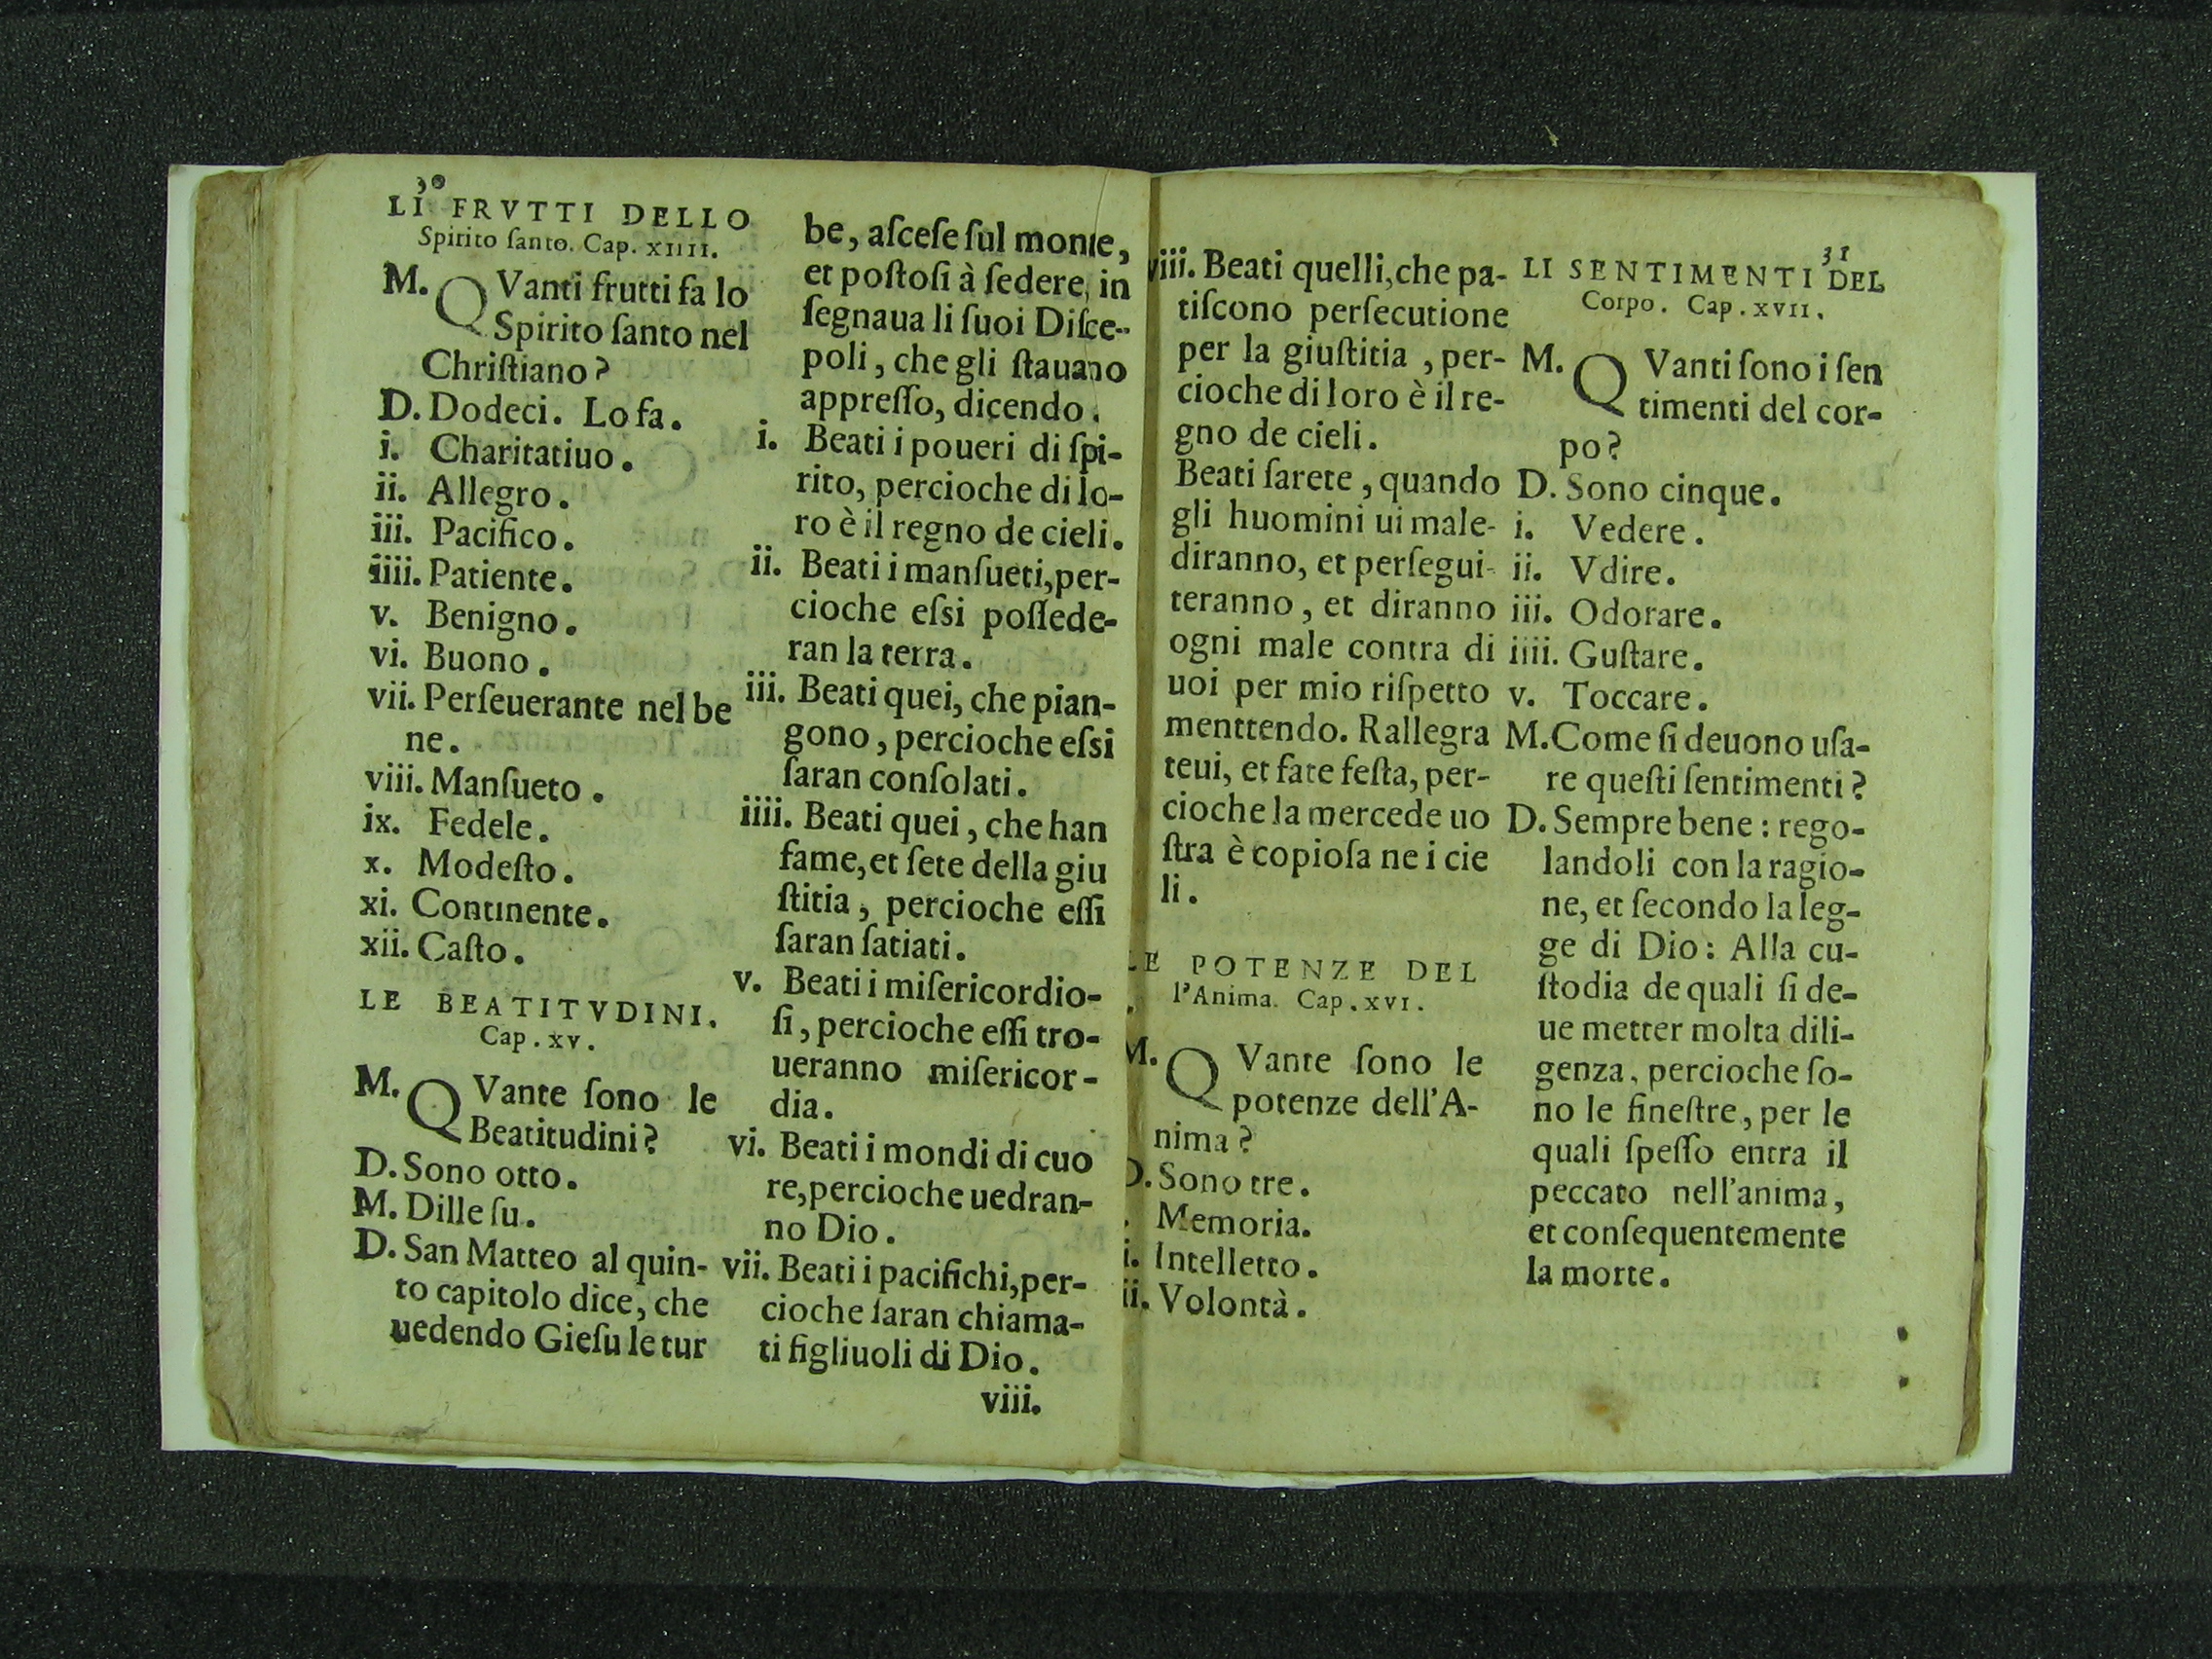 30
LI FRVTTI DELLO
Spirito ſanto. Cap. XIIII.
M. QVanti frutti fa lo
Spirito ſanto nel
Chriſtiano?
D. Dodeci. Lo fa.
i. Charitatiuo.
ii. Allegro.
iii. Pacifico.
iiii. Patiente.
v. Benigno.
vi. Buono.
vii. Perſeuerante nel be
ne.
viii. Manſueto.
ix. Fedele.
x. Modeſto.
xi. Continente.
xii. Caſto.
LE BEATITVDINI.
Cap. XV.
M. QVante ſono le
Beatitudini?
D. Sono otto.
M. Dille ſu.
D. San Matteo al quin-
to capitolo dice, che
uedendo Gieſu le tur
be, aſceſe ſul monte,
et poſtoſi à ſedere, in
ſegnaua li ſuoi Diſce-
poli, che gli ſtauano
appreſſo, dicendo.
i. Beati i poueri di ſpi-
rito, percioche di lo-
ro è il regno de cieli.
ii. Beati i manſueti, per-
cioche eſsi poſſede-
ran la terra.
iii. Beati quei, che pian-
gono, percioche eſsi
ſaran conſolati.
iiii. Beati quei, che han
fame, et ſete della giu
ſtitia, percioche eſſi
ſaran ſatiati.
v. Beati i miſericordio-
ſi, percioche eſſi tro-
ueranno miſericor-
dia.
vi. Beati i mondi di cuo
re, percioche uedran-
no Dio.
vii. Beati i pacifichi, per-
cioche ſaran chiama-
ti figliuoli di Dio.
viii.
31
viii. Beati quelli, che pa-
tiſcono perſecutione
per la giuſtitia, per-
cioche di loro è il re-
gno de cieli.
Beati ſarete, quando
gli huomini ui male-
diranno, et perſegui-
teranno, et diranno
ogni male contra di
uoi per mio riſpetto
menttendo. Rallegra
teui, et fate feſta, per-
cioche la mercede uo
ſtra è copioſa ne i cie
li.
LE POTENZE DEL
l'Anima. Cap. XVI.
M. QVante ſono le
potenze dell'A-
nima?
D. Sono tre.
Memoria.
i. Intelletto.
ii. Volontà.
LI SENTIMENTI DEL
Corpo. Cap. XVII.
M. QVanti ſono i ſen
timenti del cor-
po?
D. Sono cinque.
i. Vedere.
ii. Vdire.
iii. Odorare.
iiii. Guſtare.
v. Toccare.
M. Come ſi deuono uſa-
re queſti ſentimenti?
D. Sempre bene: rego-
landoli con la ragio-
ne, et ſecondo la leg-
ge di Dio: Alla cu-
ſtodia de quali ſi de-
ue metter molta dili-
genza, percioche ſo-
no le fineſtre, per le
quali ſpeſſo entra il
peccato nell'anima,
et conſequentemente
la morte.